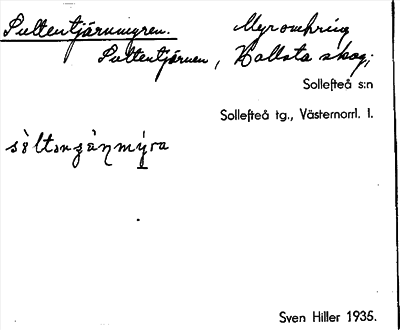 Sultentjärnmyren. Myr omkring
Sultentjärnen, Hallsta skog;
Sollefteå s:n
Sollefteå tg., Västernorrl. l.
Sven Hiller 1935.